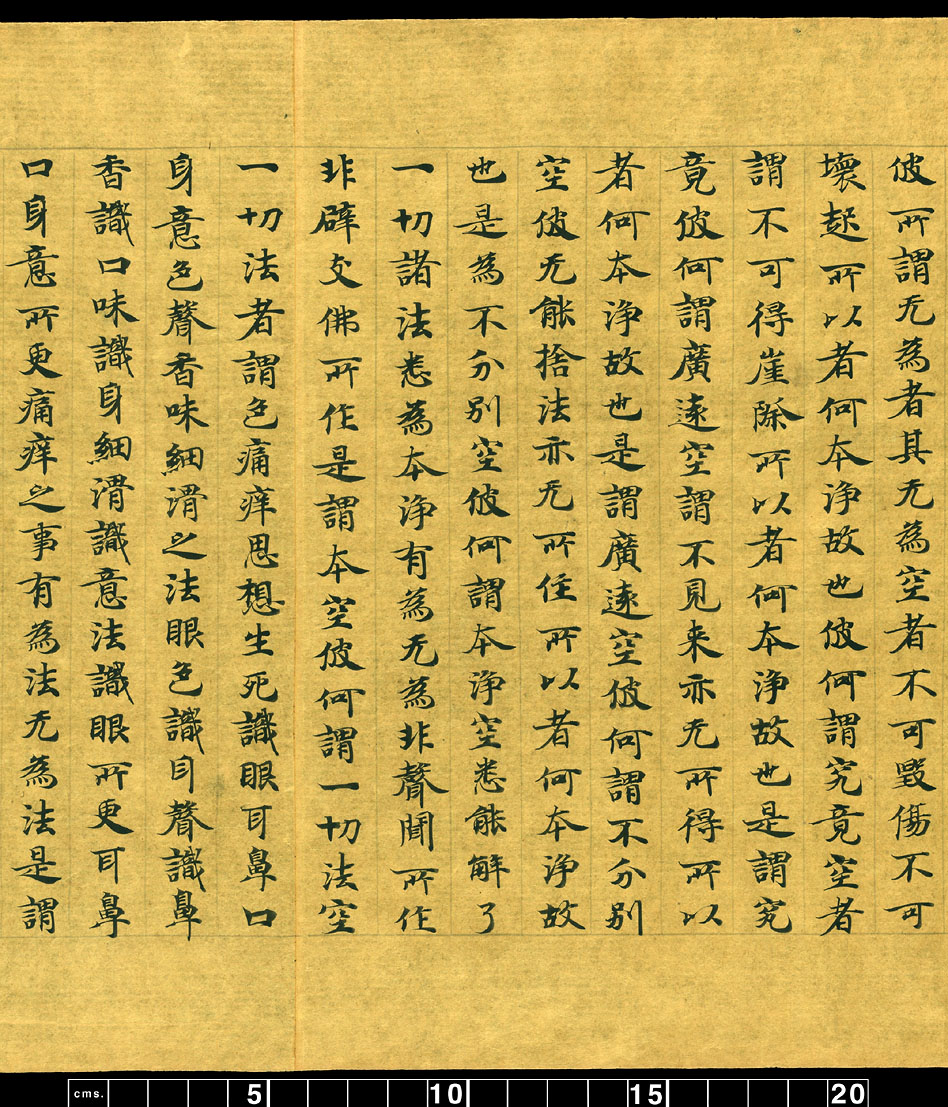 彼所謂无為者其无為空者不可毀傷不可
壞起所以者何本淨故也彼何謂究竟空者
謂不可得崖際所以者何本淨故也是謂究
竟彼何謂廣遠空謂不見来亦无所得所以
者何本淨故也是謂廣遠空彼何謂不分別
空彼无能捨法亦无所住所以者何本淨故
也是為不分別空彼何謂本淨空悉能解了
一切諸法悉為本淨有為无為非聲聞所作
非辟支佛所作是謂本空彼何謂一切法空
一切法者謂色痛痒思想生死識眼耳鼻口
身意色聲香味細滑之法眼色識耳聲識鼻
香識口味識身細滑識意法識眼所更耳鼻
口身意所更痛痒之事有為法无為法是謂
cms. 5 10 15 20